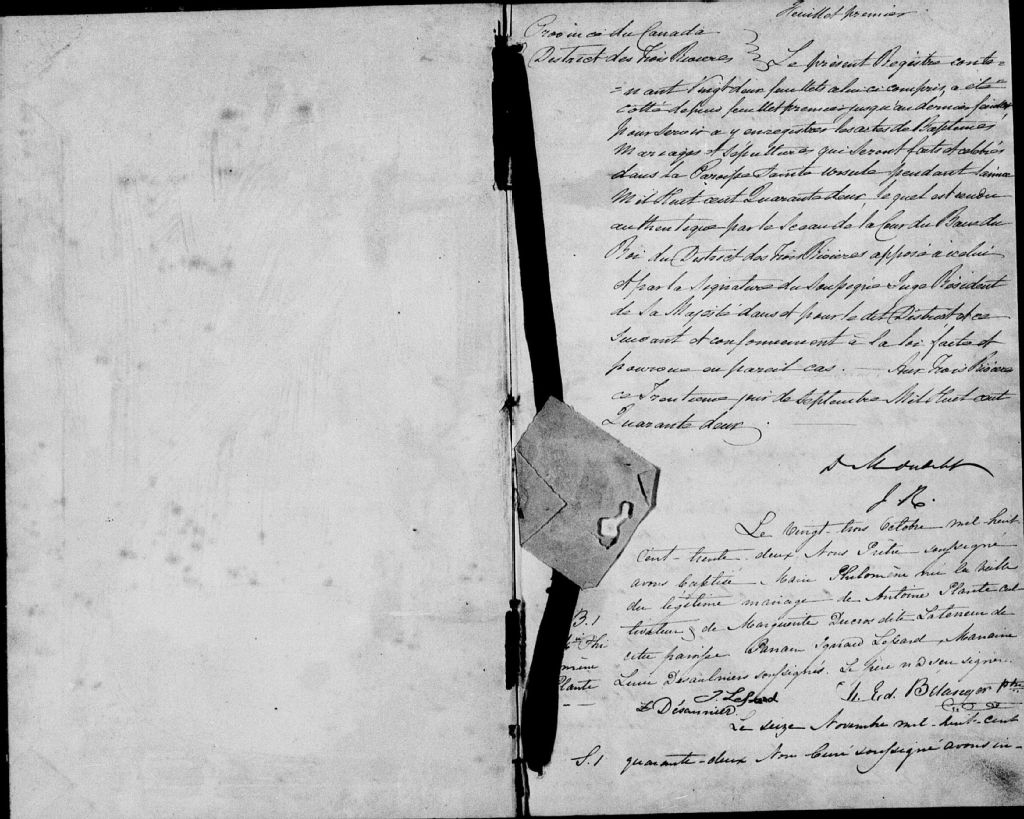 Feuillet premier
Province du Canada
District des Trois Rivieres
Le présent Registre conte=
=nant Vingt deux feuillets celui ci compris, a été
cotté depuis feuillet premier jusqu'au dernier feuillet
pour servir a y enregistrer les actes de Baptêmes
Mariages et sépultures qui seront faits et célébrés
dans la Paroisse Sainte Ursule pendant l'année
Mil Huit cent Quarante deux, lequel est rendu
authentique par le Sceau de la Cour du Banc du
Roi du District des Trois Rivieres apposé a icelui
et par la Signature du Soussigné Juge Résident
de Sa Majesté dans et pour le dit District et ce
suivant et conformement à la loi faite et
pourvue en pareil cas. — Aux Trois Rivieres
ce Trentieme jour de Septembre Mil Huit cent
Quarante deux.
D Mondelet
J. R.
Le vingt-trois Octobre mil-huit-
cent-trente-deux Nous Prêtre soussigné
avons baptisé Marie Philomène née la veille
du légitime mariage de Antoine Plante cul
B. 1
tivateur, & de Marguerite Ducros dit Laterreur de
cette paroisse Parrain Ignace Lessard Marraine
mène
Plante
Lucie Désaulniers soussignés. Le père n'a su signer.
J. Lessard
N. Ed. Bélanger ptre
L Désaunier
Le seize Novembre mil-huit-cent
S. 1
quarante-deux Nous Curé soussigné avons in-